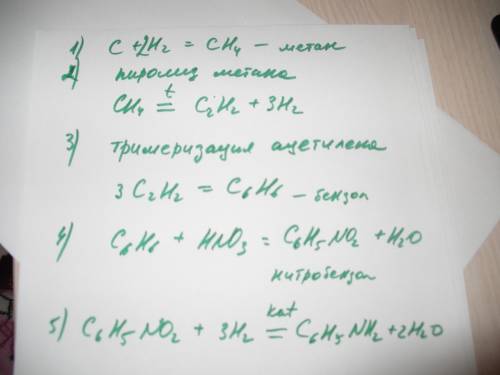 1) C + 2H2 = CH4 - метан
2) пиролиз метана
CH4 =t= C2H2 + 3H2
3) тримеризация ацетилена
3 C2H2 = C6H6 - бензол
4) C6H6 + HNO3 = C6H5NO2 + H2O
нитробензол
5) C6H5NO2 + 3H2 =kat= C6H5NH2 + 2H2O